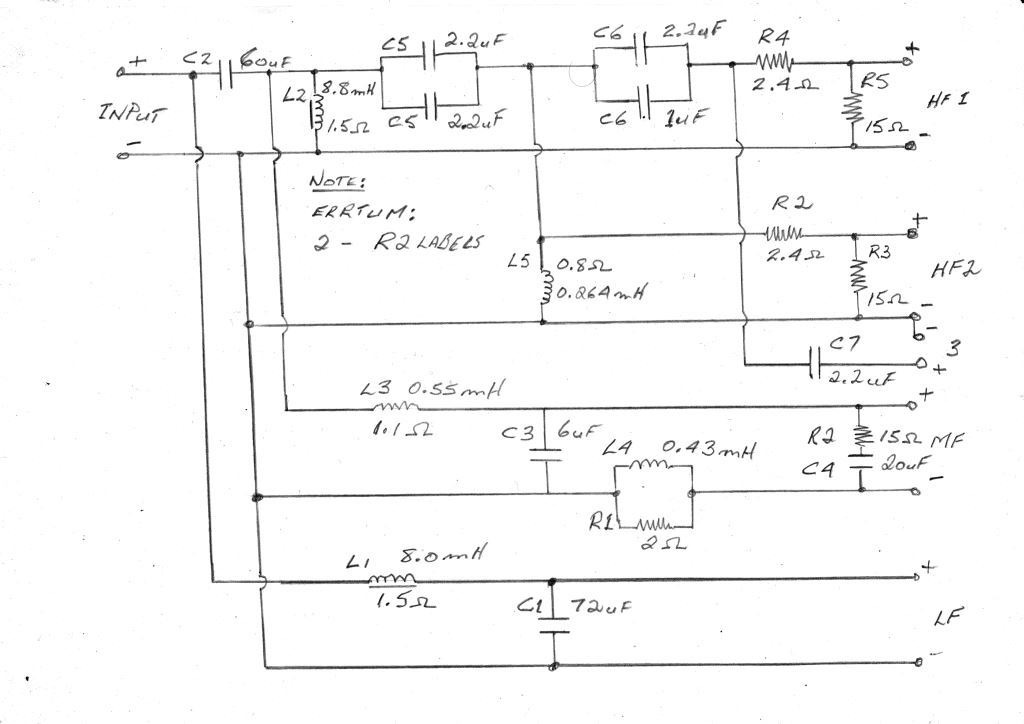 + C2 60uF
C5 2.2uF
C6 2.2uF
R4
+
L2 8.8mH
2.4Ω
R5
INPUT
1.5Ω
C5 2.2uF
C6 1uF
15Ω
HF1
-
-
NOTE:
ERRTUM:
2 - R2 LABELS
R2
+
L5 0.8Ω
0.264mH
2.4Ω
R3
15Ω
HF2
-
-
C7
3
2.2uF
+
L3 0.55mH
+
1.1Ω
C3 6uF
R2 15Ω MF
L4 0.43mH
C4 20uF
-
R1
2Ω
L1 8.0mH
+
1.5Ω
C1 72uF
LF
-